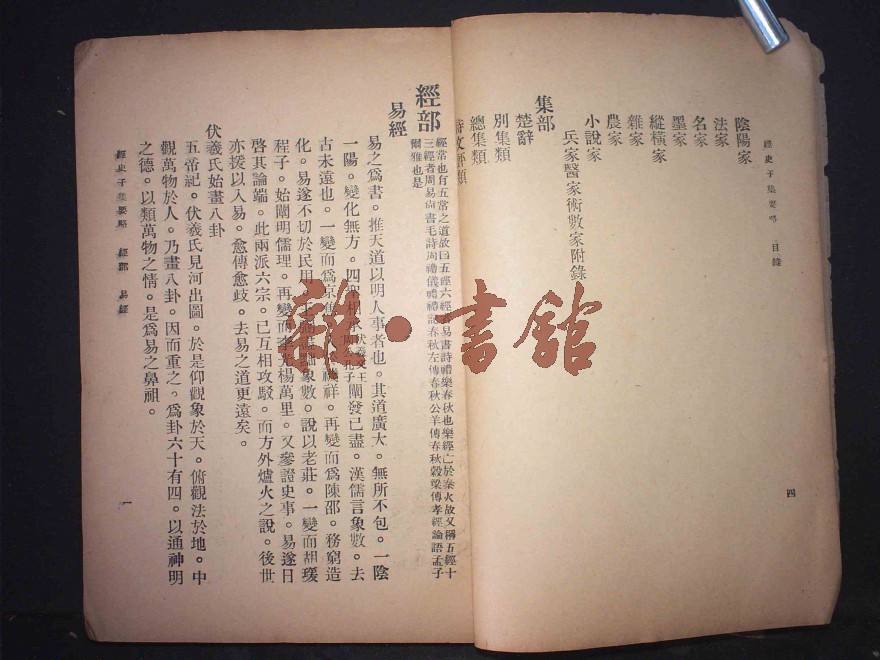 經史子集要略　目錄
陰陽家
法家
名家
墨家
縱橫家
雜家
農家
小說家
兵家醫家術數家附錄
集部
楚辭
別集類
總集類
詩文評類
四
經部
經常也有五常之道故曰五經六經者易書詩禮樂春秋也樂經亡於秦火故又稱五經十
三經者周易尚書毛詩周禮儀禮禮記春秋左傳春秋公羊傳春秋穀梁傳孝經論語孟子
爾雅也是
易經
易之爲書。推天道以明人事者也。其道廣大。無所不包。一陰
一陽。變化無方。四聖 伏羲文王 孔子 闡發已盡。漢儒言象數。去
古未遠也。一變而爲京焦 禨祥。再變而爲陳邵。務窮造
化。易遂不切於民用。王弼 象數。說以老莊。一變而胡瑗
程子。始闡明儒理。再變而李光楊萬里。又參證史事。易遂日
啓其論端。此兩派六宗。已互相攻駁。而方外爐火之說。後世
亦援以入易。愈傳愈歧。去易之道更遠矣。
伏羲氏始畫八卦
五帝紀。伏羲氏見河出圖。於是仰觀象於天。俯觀法於地。中
觀萬物於人。乃畫八卦。因而重之。爲卦六十有四。以通神明
之德。以類萬物之情。是爲易之鼻祖。
經史子集要略　經部　易經
一
雜·書館